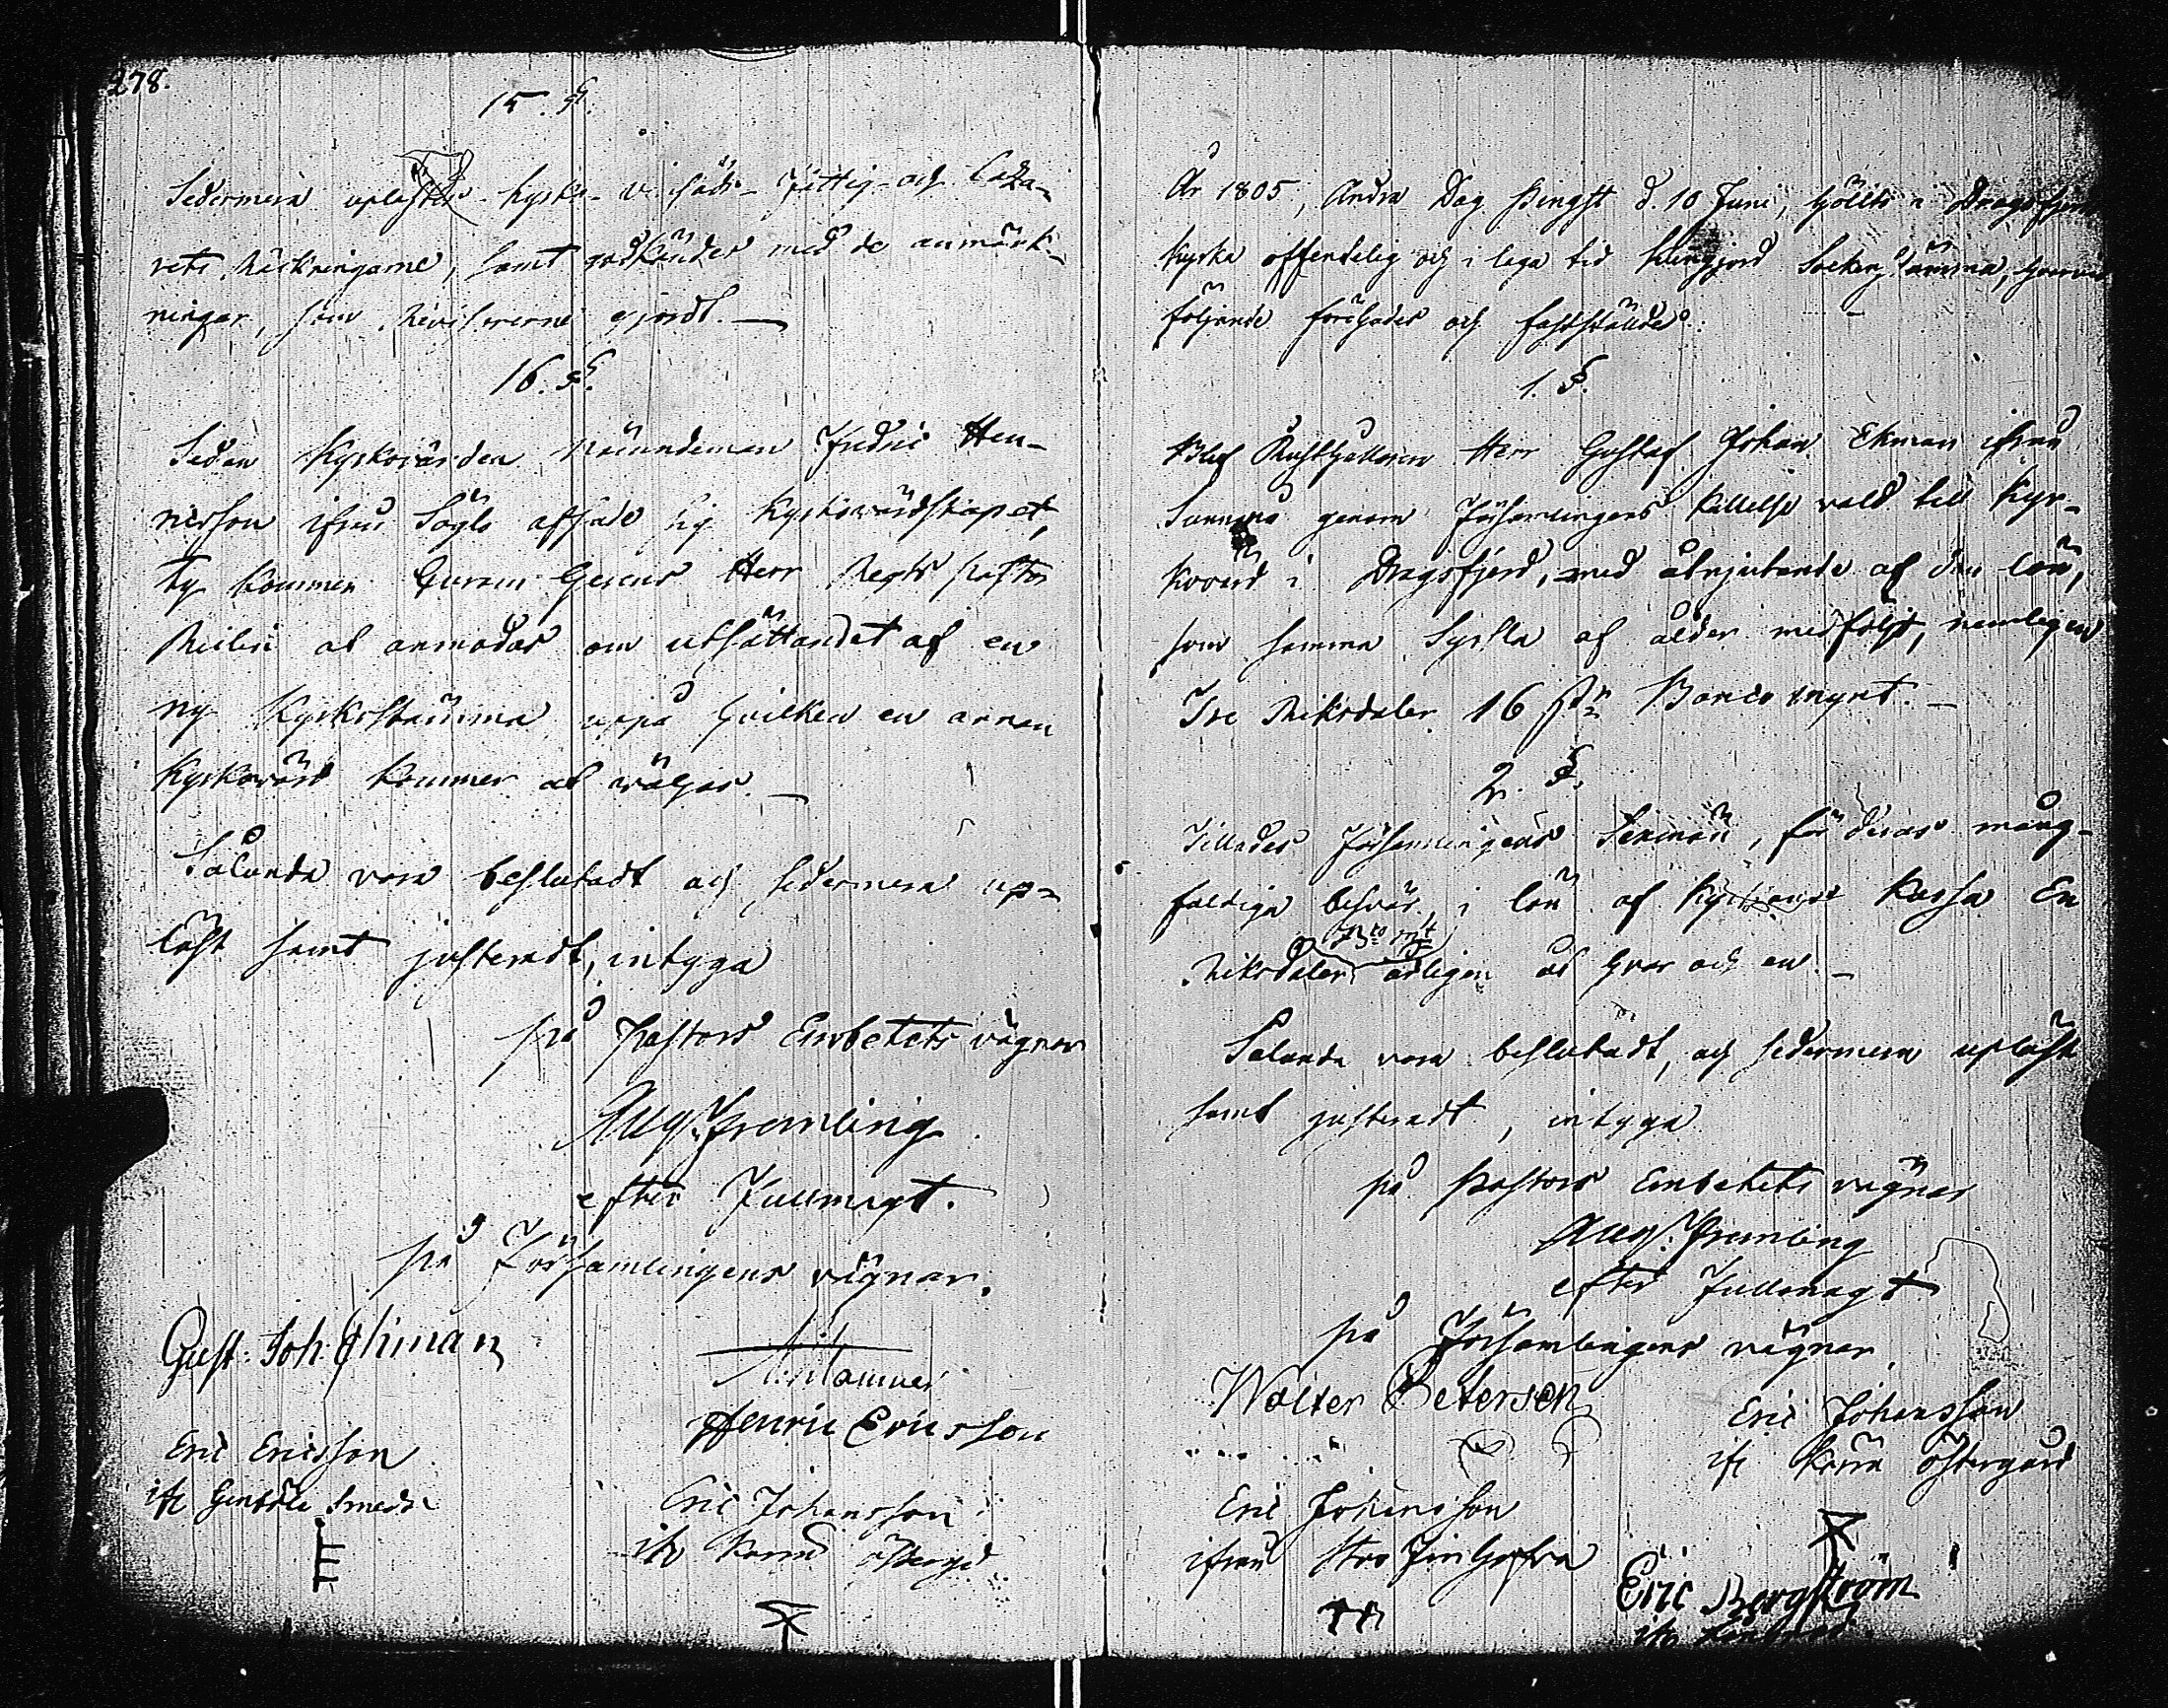 278.
15. §.
Sedermera uplästes Kyrko- Fattig- och Laza-
rets Räkningarne, samt godkändes med de anmärk-
ningar, som Revisorerne gjordt. —
16. §.
Sedan Kyrkovärden Nämndeman Fredric Hen-
ricsson ifrån Söglö afsade sig Kyrkovärdskapet,
ty kommer Curam Gerens Herr Regts Pastor
at anmodas om utsättandet af en
ny Kyrkostämma uppå hvilken en annan
Kyrkovärd kommer at wäljas. —
Sålunda vara beslutadt och sedermera up-
läst samt justeradt, intyga
på Pastors Embetets vägnar
Alex. Framling
efter Fullmagt.
på Församlingens vägnar.
Gust: Joh. Ekman
A. Hammar
Henric Ericsson
Eric Ericsson
ifr Smeds
Eric Johansson
ifr Kärra Östergd
År 1805, Andra Dag Pingst d. 10 Juni, hölts i Dragsfjerds
Kyrka offentelig och i laga tid kungjord Sockenstämma, hvarvid
följande förehades och fastställdes:
1. §.
Blef Rusthållaren Herr Gustaf Johan Ekman ifrån
Sunnanå genom Församlingens kallelse vald till Kyr-
kovärd i Dragsfjerd, med åtnjutande af den lön,
som samma Syssla af ålder medföljt, nemligen
Tre Riksdaler 16 s. Banco mynt. —
2. §.
Tillades Församlingens Sexmän, för deras mång-
faldiga besvär, i lön af Kyrkans Kassa En
Bco mt
Riksdaler årligen åt hvar och en. —
Sålunda vara beslutadt, och sedermera upläst
samt justeradt, intyga
på Pastors Embetets vägnar
Alex. Framling
efter Fullmagt
på Församlingens vägnar
Wolter Petersen
Eric Johansson
ifr Kärra Östergård
Eric Johansson
ifrån
Eric Bergström
ifr